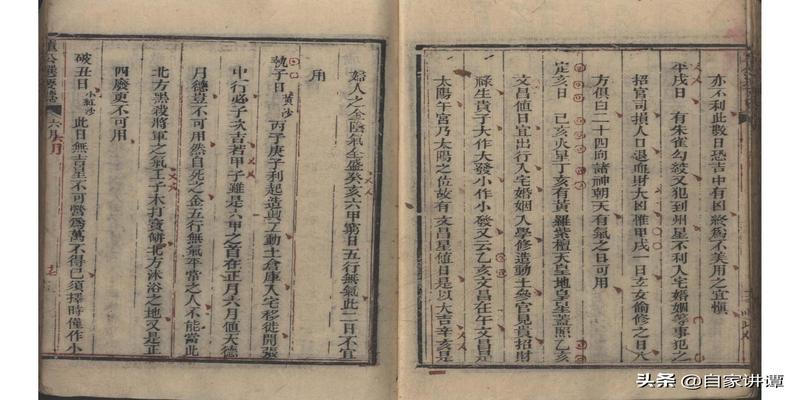 亦不利此數日恐吉中有凶終為不美用之宜慎
平戌日 有朱雀勾絞又犯到州星不利入宅婚姻等事犯之
招官司損人口退血財大凶惟甲戌一日玄女偷修之日八
方俱白二十四向諸神朝天有氣之日可用
定亥日 己亥火星丁亥有黃羅紫檀天皇地皇星蓋照乙亥
文昌值日宜出行入宅婚姻入學修造動土參官見貴招財
祿生貴子大作大發小作小發又云乙亥文昌在午文昌星
太陽午宮乃太陽之位故有文昌星值日是以大吉辛亥是
婦人之金陰氣全盛癸亥六甲窮日五行無氣此二日不宜
用
執子日 黃沙 丙子庚子利起造興工動土倉庫入宅移徙開張
中行必子次吉若甲子雖是六甲之首在正月六月值天德
月德豈不可用然自死之金五行無氣平當之人不能當此
北方黑殺將軍之氣壬子木打寶餅北方沐浴之地又是正
四廢更不可用
破丑日 小紅沙 此日無吉星不可營為萬不得已須擇時僅作小
六月
頭条 @自家讲谭